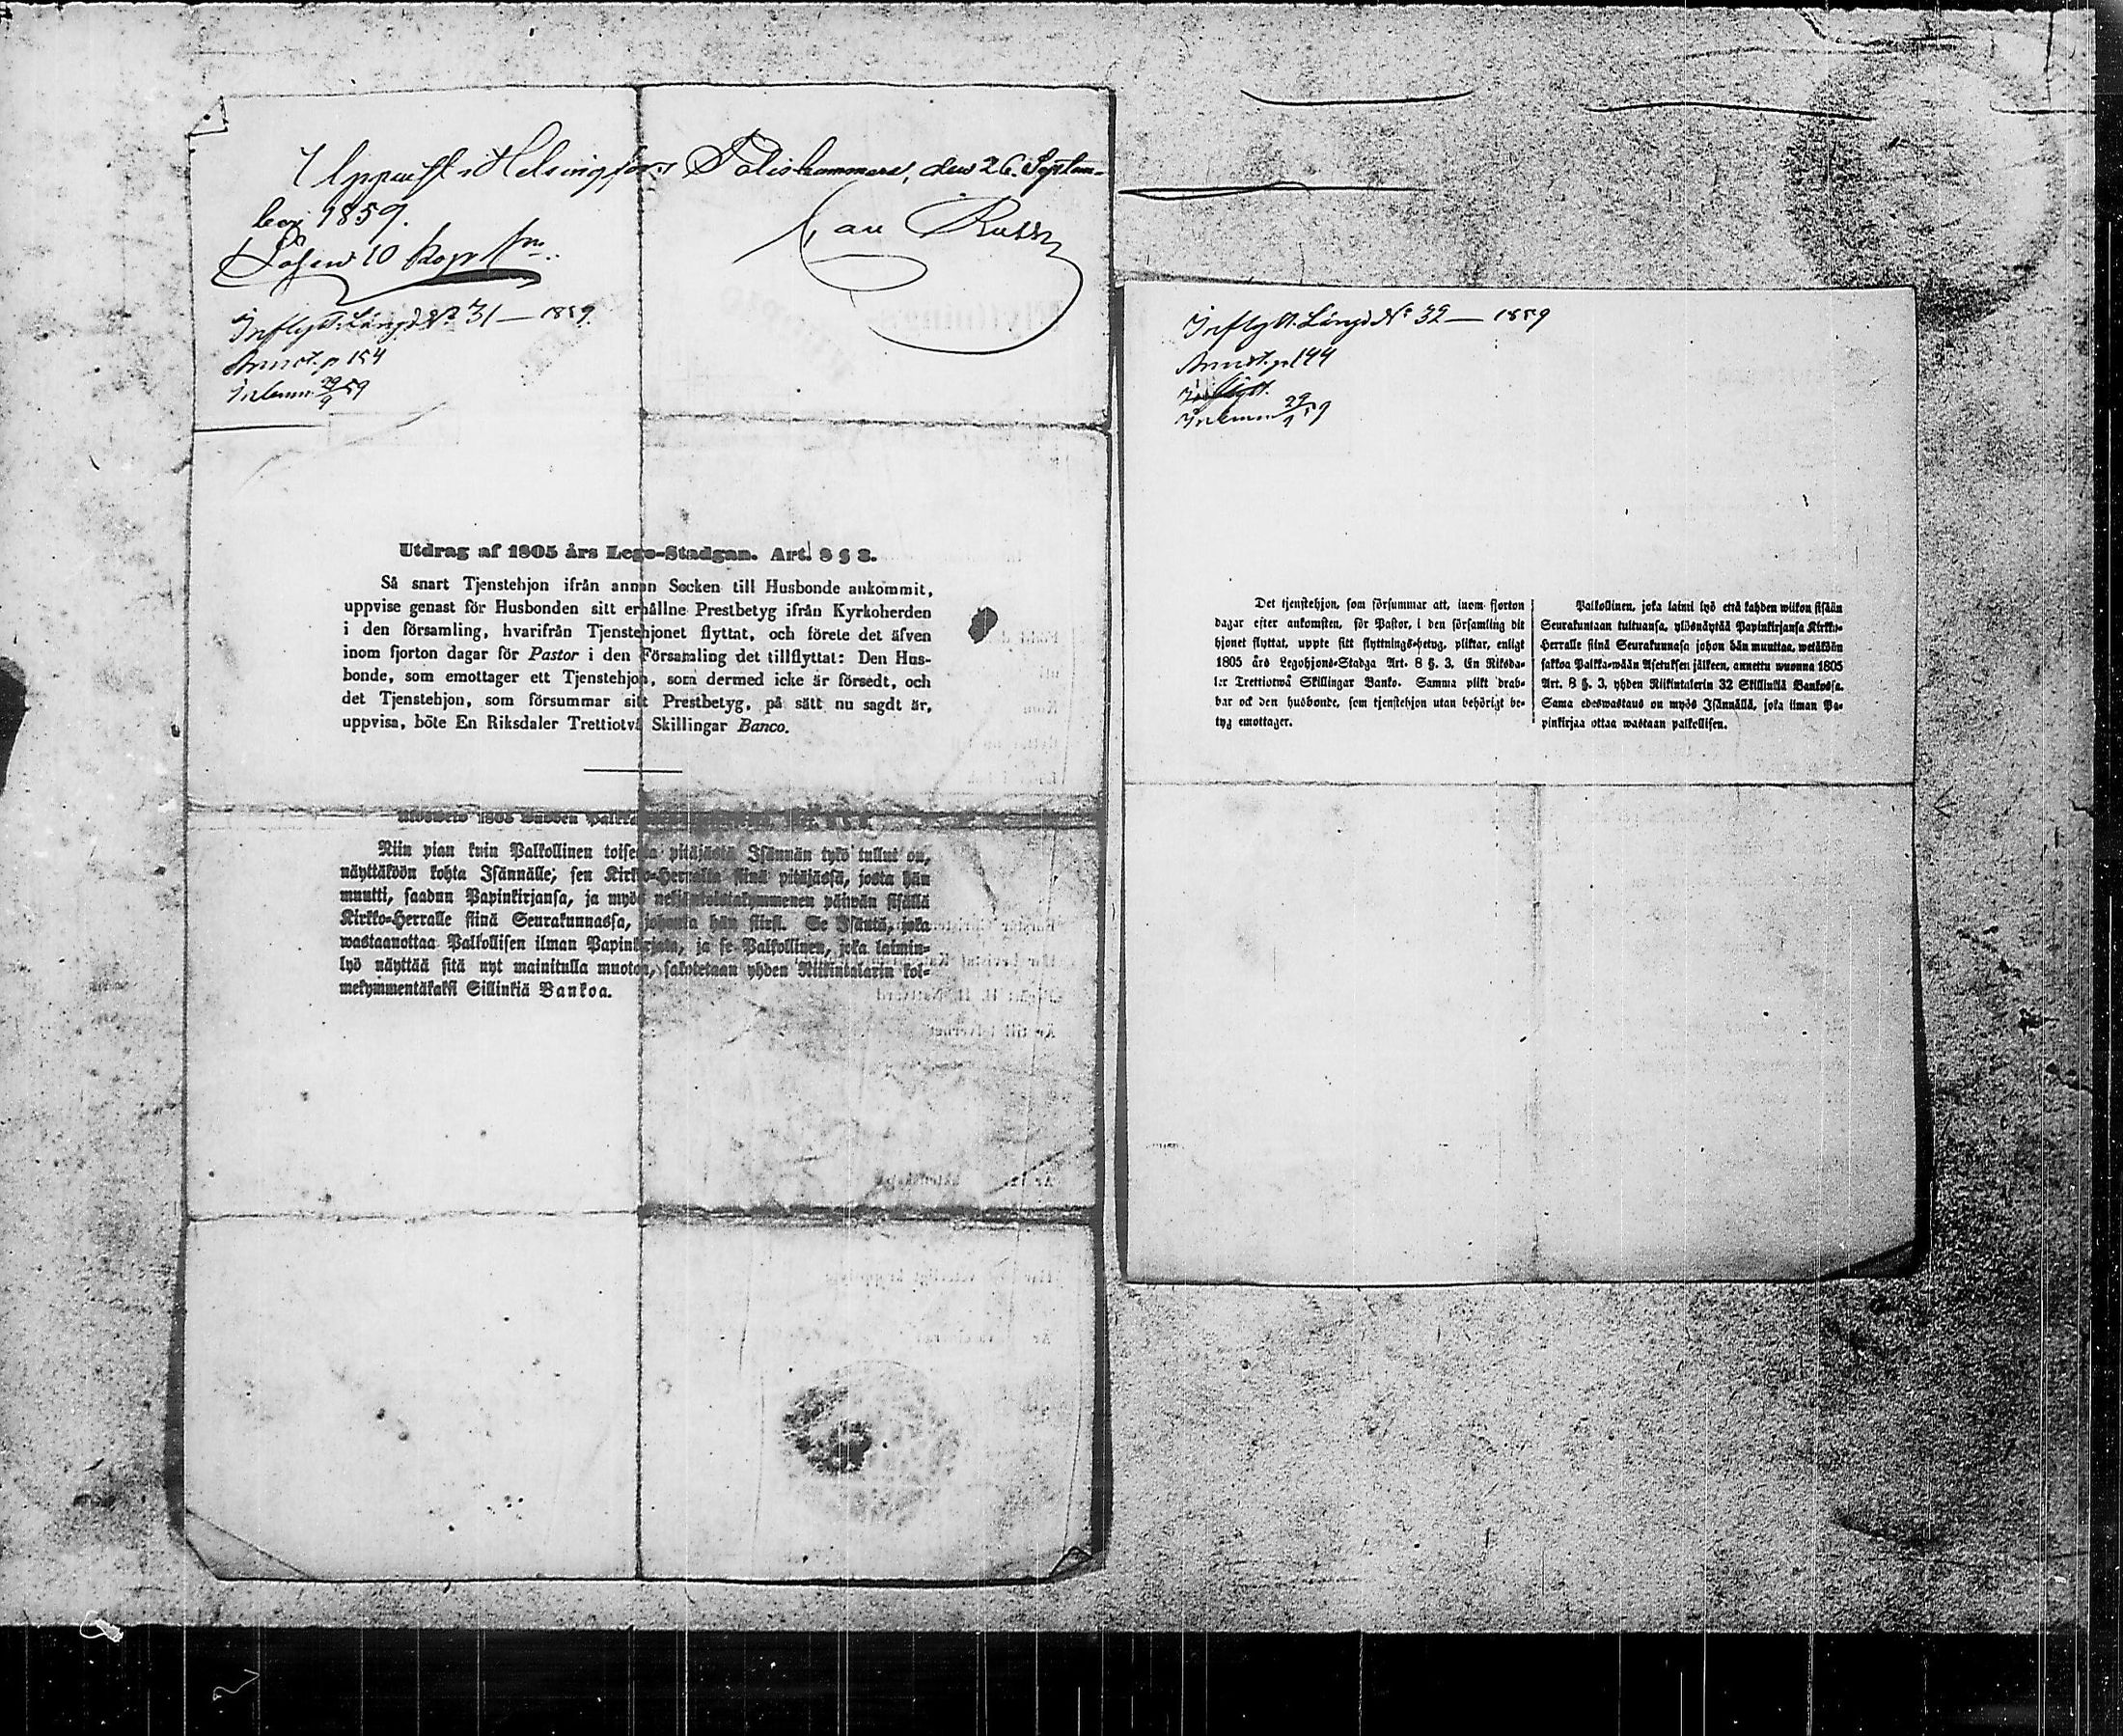 Uppvist i Helsingfors Poliskammare, den 26. Septem-
ber 1859.
Lösen 10 kop. Sm.
Inflytt. Längd. Nº 31 — 1859.
Annot. p 154
Inlemn. 29/9 59
Utdrag af 1805 års Lego-Stadgan. Art. 8 § 3.
Så snart Tjenstehjon ifrån annan Socken till Husbonde ankommit,
uppvise genast för Husbonden sitt erhållne Prestbetyg ifrån Kyrkoherden
i den församling, hvarifrån Tjenstehjonet flyttat, och förete det äfven
inom fjorton dagar för Pastor i den Församling det tillflyttat: Den Hus-
bonde, som emottager ett Tjenstehjon, som dermed icke är försedt, och
det Tjenstehjon, som försummar sitt Prestbetyg, på sätt nu sagdt är,
uppvisa, böte En Riksdaler Trettiotvå Skillingar Banco.
1805 wuoden
Niin pian kuin Palkollinen toisesta pitäjästä Isännän tykö tullut on,
näyttäköön kohta Isännälle, sen Kirkko-Herralta siinä pitäjässä, josta hän
muutti, saadun Papinkirjansa, ja myös neljäntoistakymmenen päiwän sisällä
Kirkko-Herralle siinä Seurakunnassa, johonta hän siirsi. Se Isäntä, joka
wastaanottaa Palkollisen ilman Papinkirjata, ja se Palkollinen, joka laimin-
lyö näyttää sitä nyt mainitulla muoton, sakotetaan yhden Riikintalarin kol-
mekymmentäkaksi Sillinkiä Bankoa.
Inflytt. Längd Nº 32 — 1859
Annot. p 144
Inlemn 29/9 59
Det tjenstehjon, som försummar att, inom fjorton
dagar efter ankomsten, för Pastor, i den församling dit
hjonet flyttat, uppte sitt flyttnings-betyg, pliktar, enligt
1805 års Legohjons-Stadga Art. 8 §. 3. En Riksda-
ler Trettiotwå Skillingar Banko. Samma plikt drab-
bar ock den husbonde, som tjenstehjon utan behörigt be-
tyg emottager.
Palkollinen, joka laimi lyö että kahden wiikon sisään
Seurakuntaan tultuansa, ylösnäytää Papinkirjansa Kirkko-
Herralle siinä Seurakunnasa johon hän muuttaa, wetäköön
sakkoa Palkka-wään Asetuksen jälkeen, annettu wuonna 1805
Art. 8 §. 3, yhden Riikintalerin 32 Skillinkiä Bankossa.
Sama edeswastaus on myös Isännällä, joka ilman Pa-
pinkirjaa ottaa wastaan palkollisen.